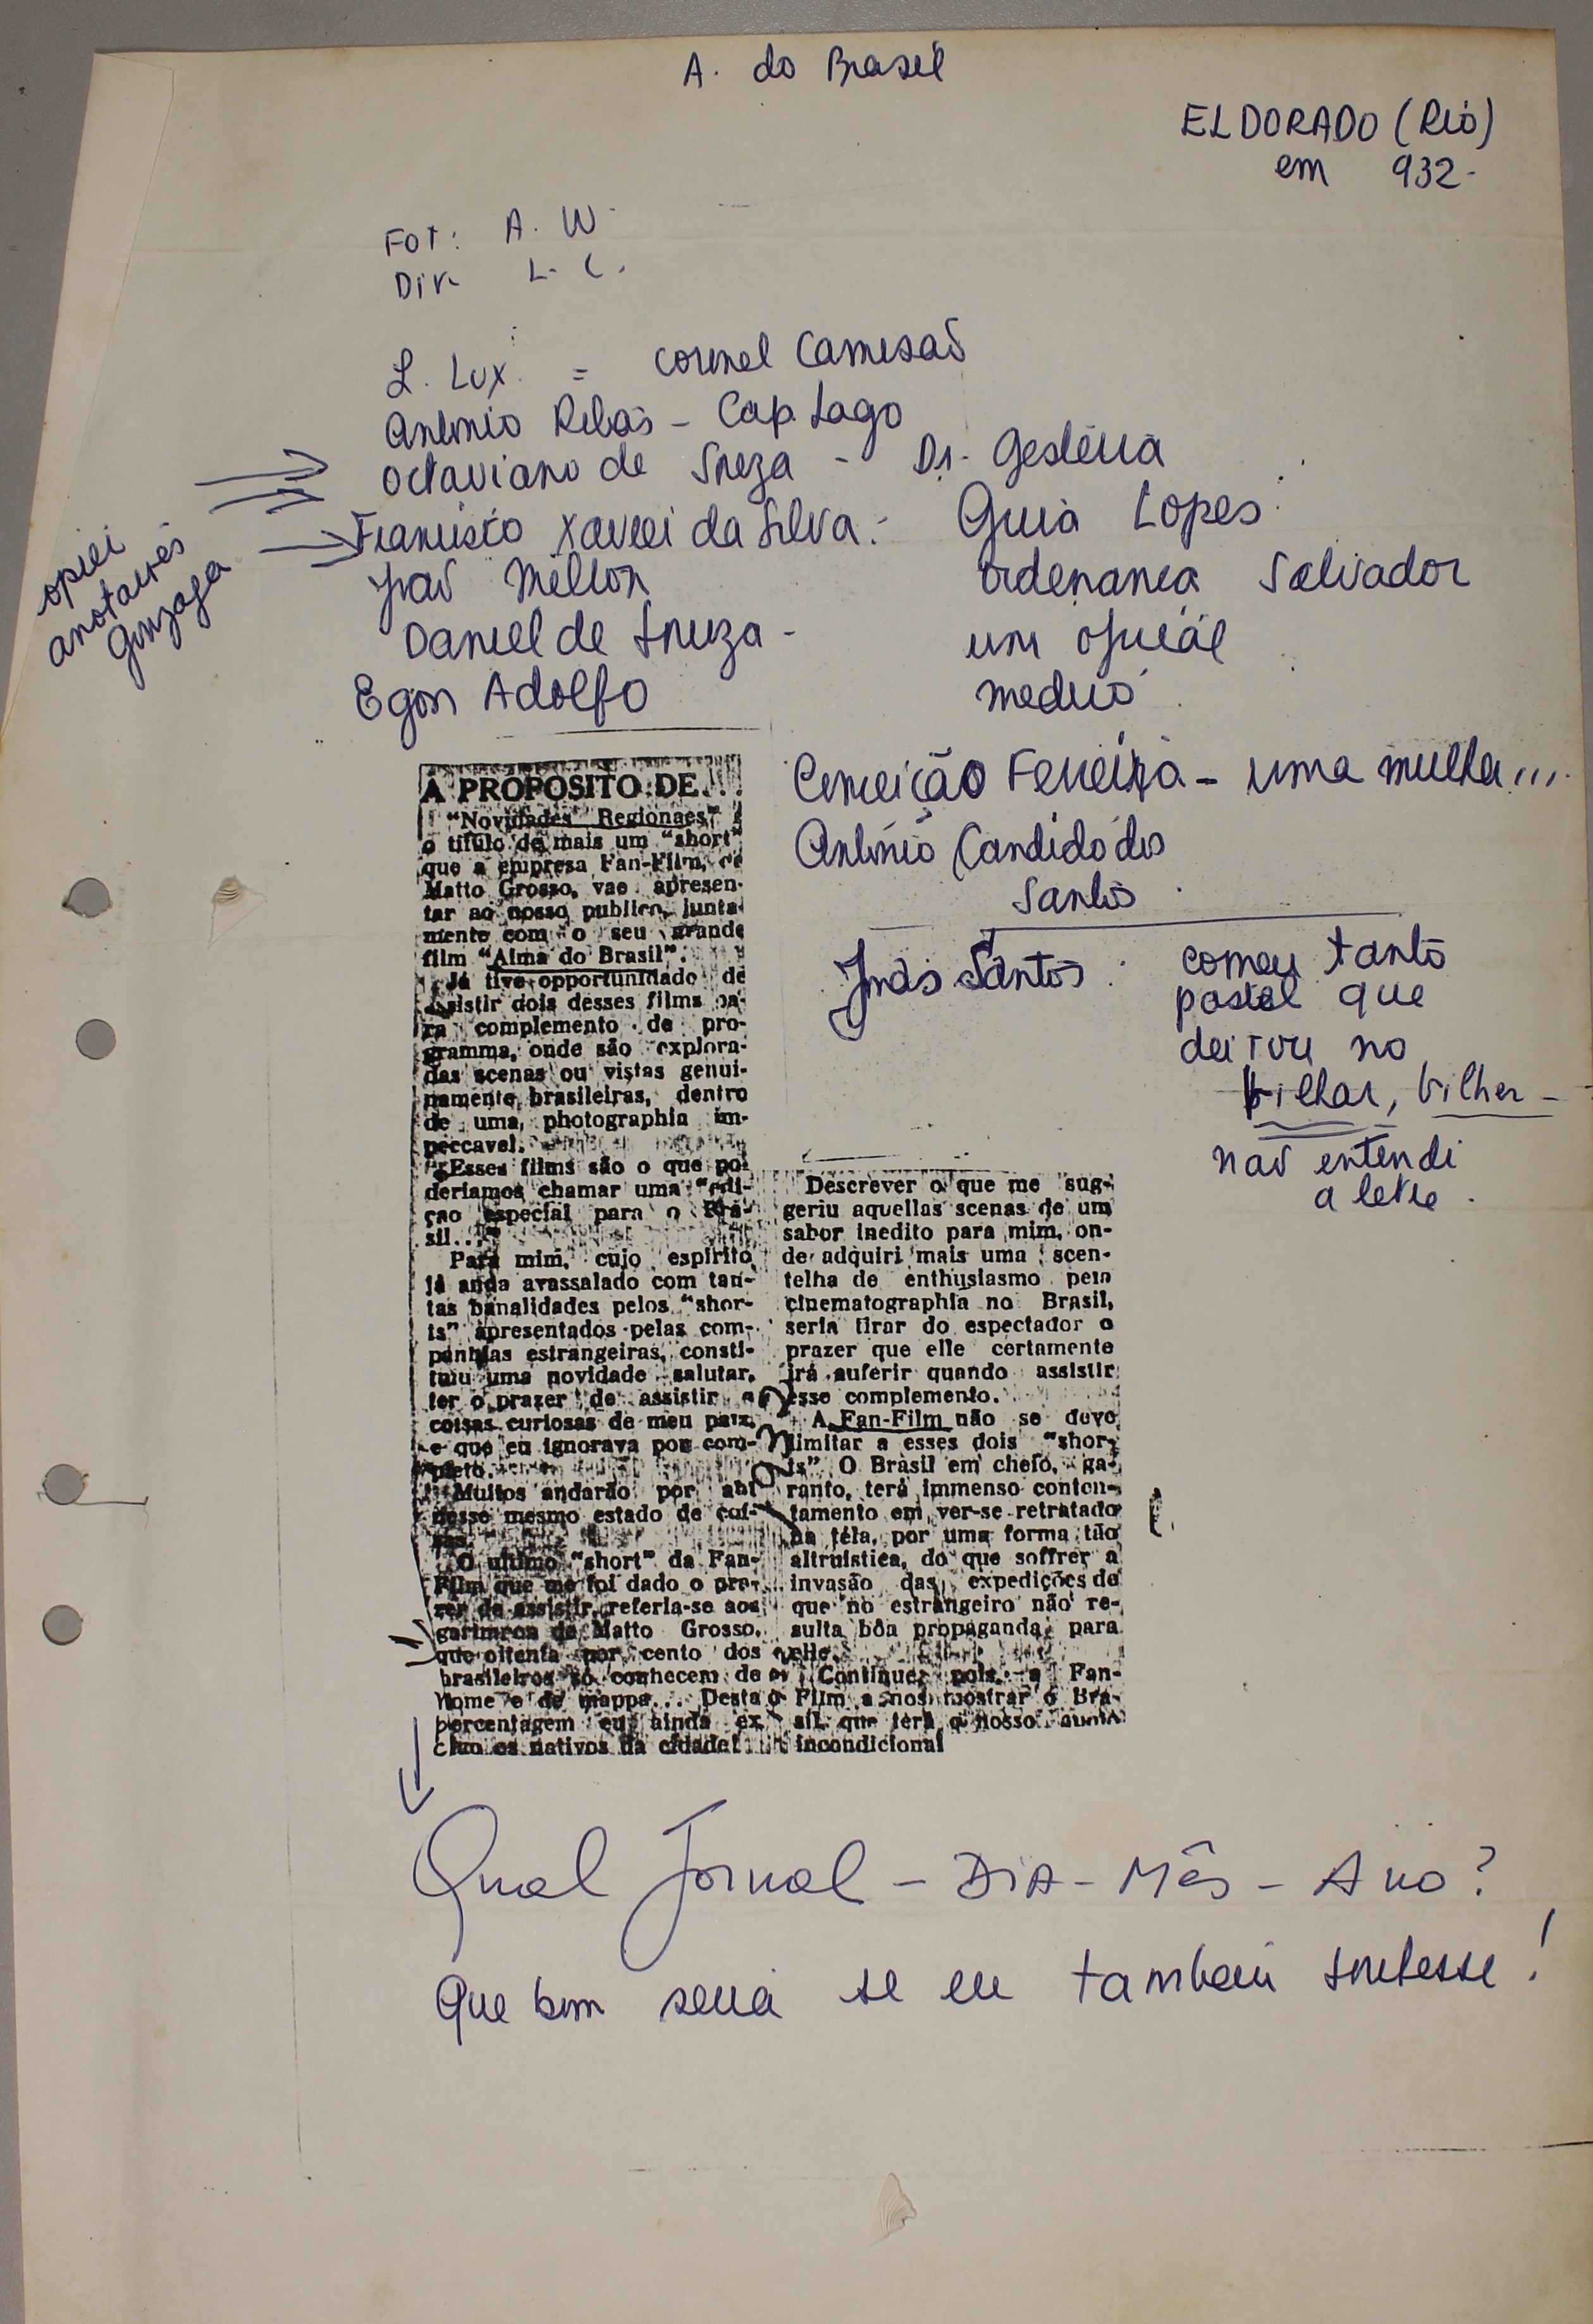 A. do Brasil
ELDORADO (Rio)
em 932-
Fot: A. W
Dir- L. C.
L. Lux. = coronel Camisão
Antonio Ribas - Cap. Lago
Octaviano de Souza - Dr. Gesteira
Francisco Xavier da Silva - Guia Lopes
João Mellon ordenança Salvador
Daniel de Souza - um oficial
Egon Adolfo medico
opiei
anotações
Gonzaga
Conceição Ferreira - uma mulher...
Antonio Candido dos
Santos
Santos: comeu tanto
pastel que
deitou no
bilhar, bilher -
não entendi
a letra.
A PROPOSITO DE...
"Novidades Regionaes"
o titulo de mais um "short"
que a empresa Fan-Film, de
Matto Grosso, vae apresen-
tar ao nosso publico, junta-
mente com o seu grande
film "Alma do Brasil".
Já tive opportunidade de
assistir dois desses films pa-
ra complemento de pro-
gramma, onde são explora-
das scenas ou vistas genui-
namente brasileiras, dentro
de uma photographia im-
peccavel.
Esses films são o que po-
deriamos chamar uma "edi-
ção especial para o Bra-
sil...
Para mim, cujo espirito
já anda avassalado com tan-
tas banalidades pelos "shor-
ts" apresentados pelas com-
panhias estrangeiras, consti-
tuiu uma novidade salutar,
ter o prazer de assistir a
coisas curiosas de meu paiz,
e que eu ignorava por com-
pleto.
Muitos andarão por ahi
nesse mesmo estado de coi-
sas.
O ultimo "short" da Fan-
Film que me foi dado o pra-
zer de assistir, referia-se aos
garimpos de Matto Grosso,
que oitenta por cento dos
brasileiros só conhecem de
nome e de mappa... Desta
percentagem eu ainda ex-
cluo os nativos da cidade!
Descrever o que me sug-
geriu aquellas scenas de um
sabor inedito para mim, on-
de adquiri mais uma scen-
telha de enthusiasmo pela
cinematographia no Brasil,
seria tirar do espectador o
prazer que elle certamente
irá auferir quando assistir
esse complemento.
A Fan-Film não se deve
limitar a esses dois "shor-
ts". O Brasil em cheio, ga-
ranto, terá immenso conten-
tamento em ver-se retratado
na téla, por uma forma tão
altruistica, do que soffrer a
invasão das expedições de
que no estrangeiro não re-
sulta bôa propaganda para
elle.
Continue, pois, a Fan-
Film a nos mostrar o Bra-
sil que terá o nosso
incondicional
Qual Jornal - Dia - Mês - Ano?
Que bom seria se eu tambem soubesse!